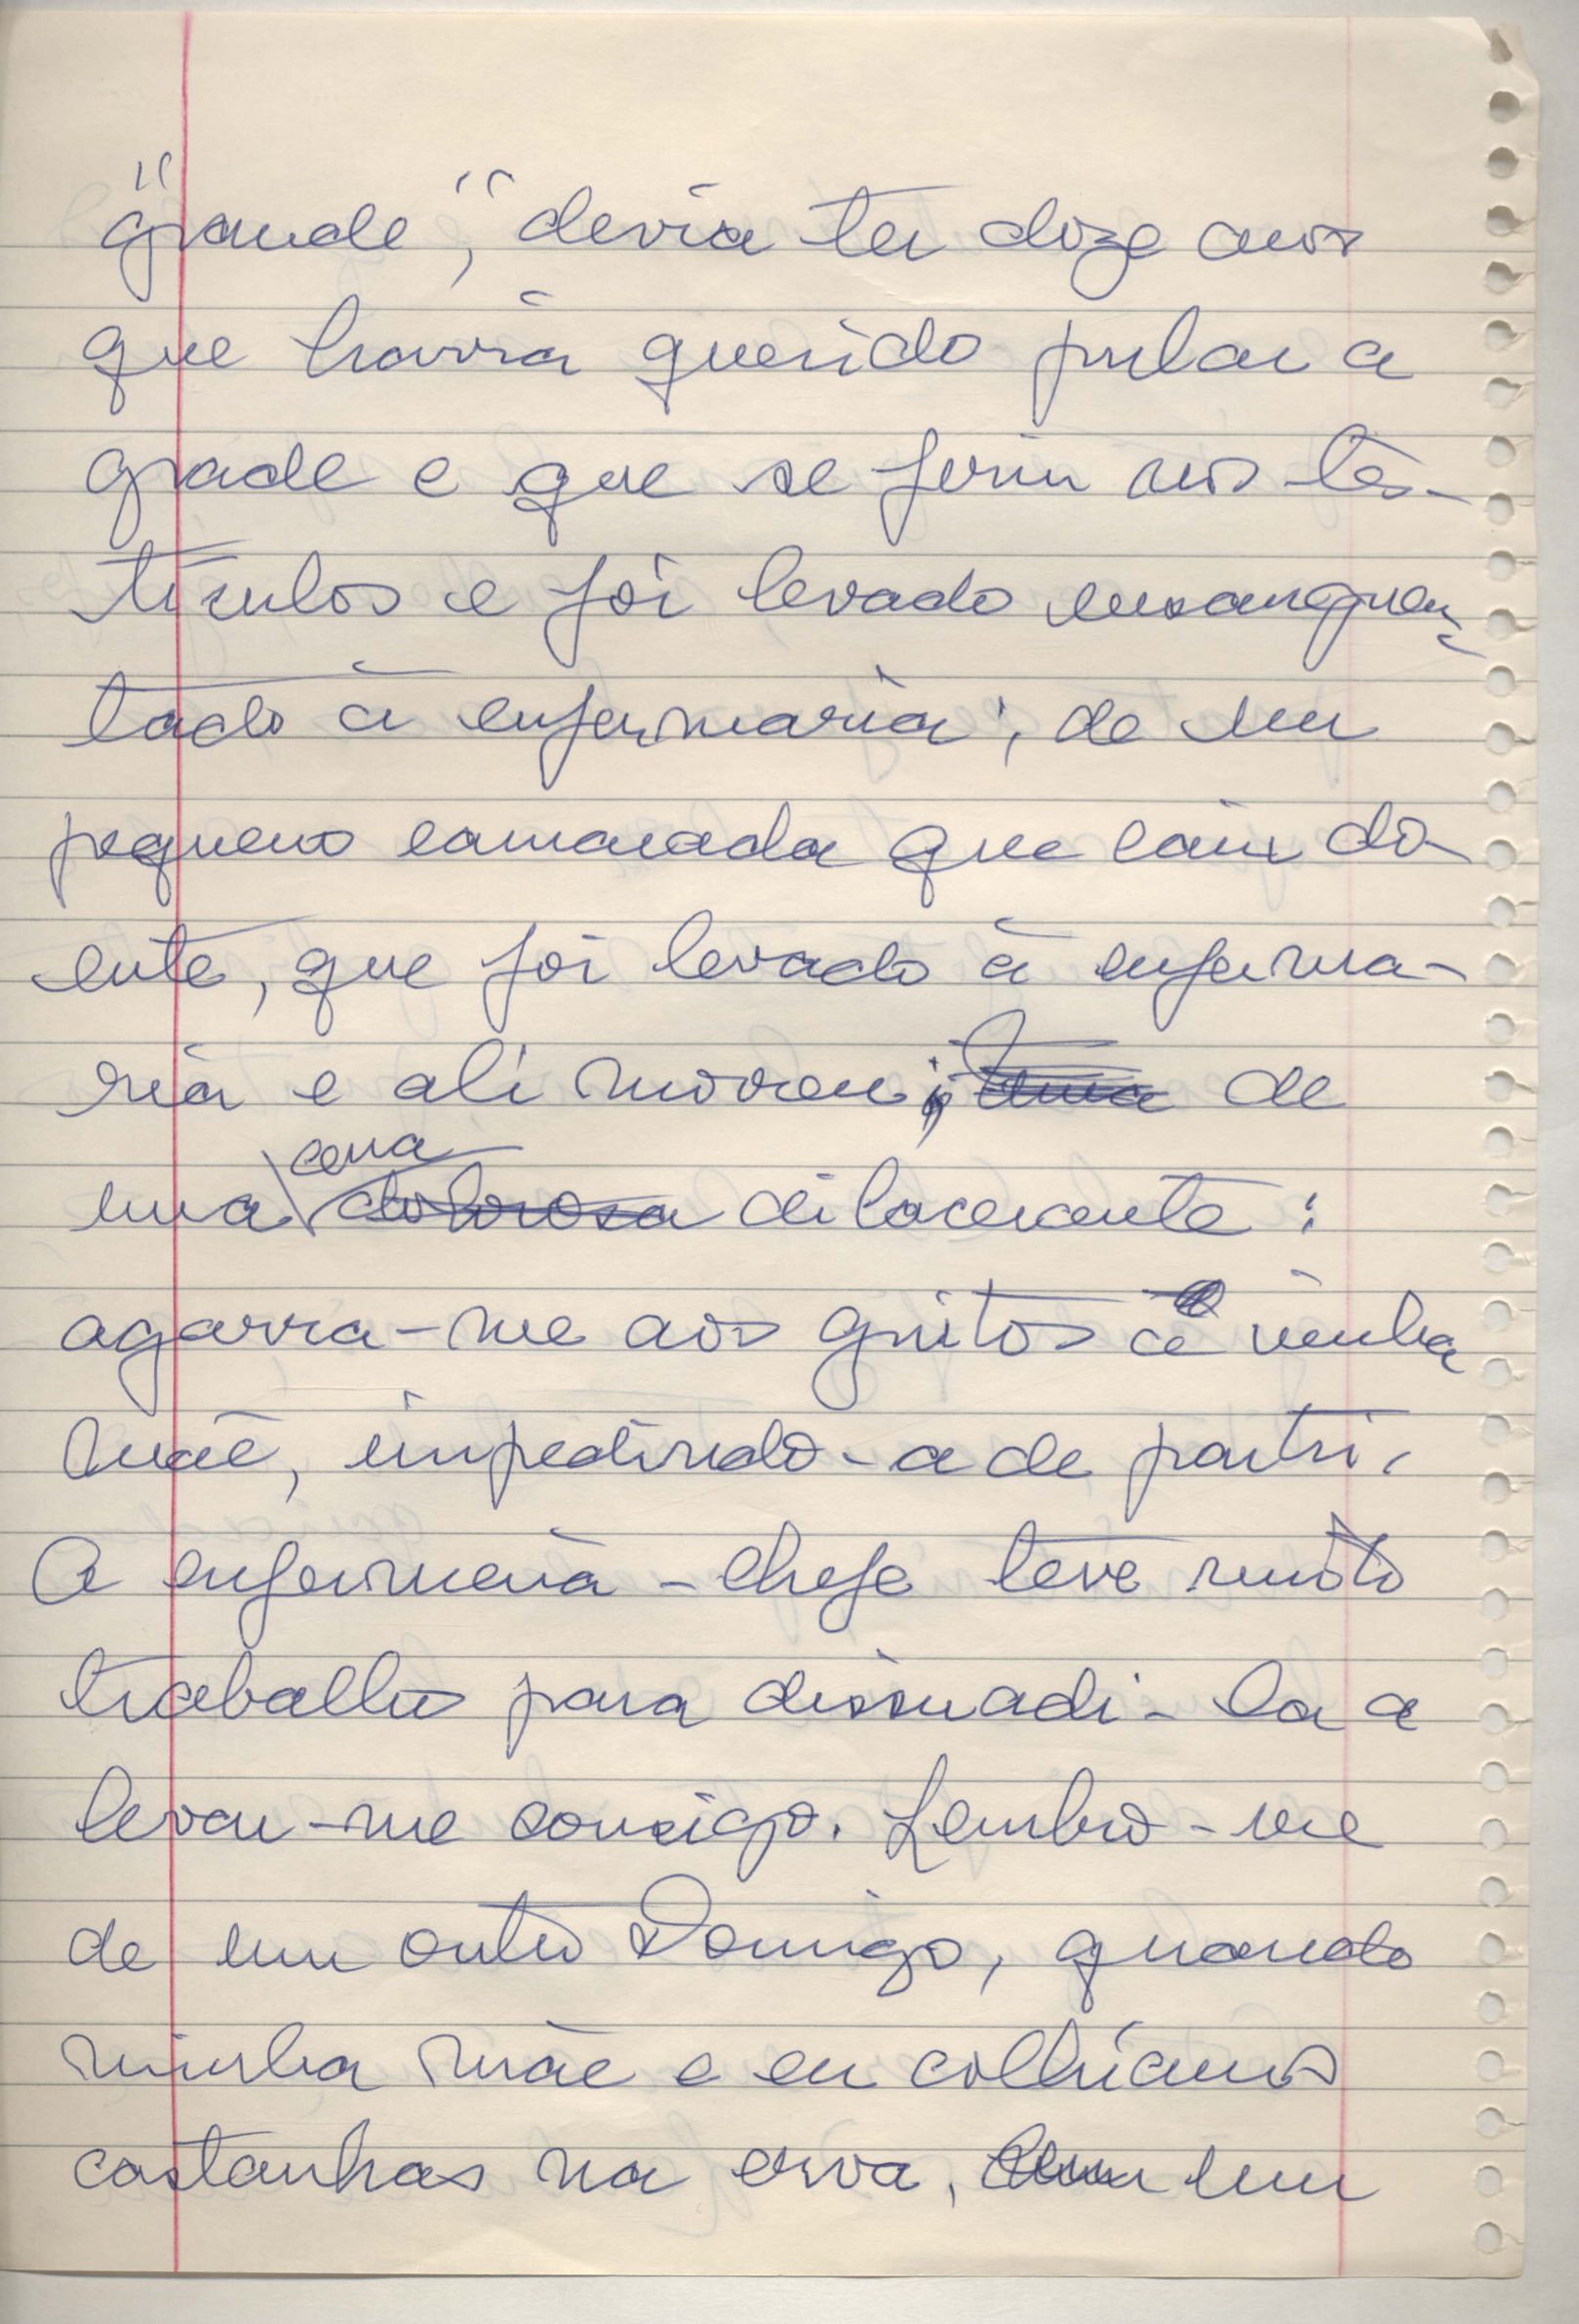 "grande", devia ter doze anos
que havia querido pular a
grade e que se feriu nos tes-
tículos e foi levado ensanguen-
tado à enfermaria; de um
pequeno camarada que caiu do-
ente, que foi levado à enferma-
ria e ali morreu; de
uma cena dolorosa dilacerante:
agarrra-me aos gritos a minha
mãe, impedindo-a de partir.
A enfermeira-chefe teve muito
trabalho para dissuadi-la a
levar-me consigo. Lembro-me
de um outro Domingo, quando
minha mãe e eu colhíamos
castanhas na erva, um